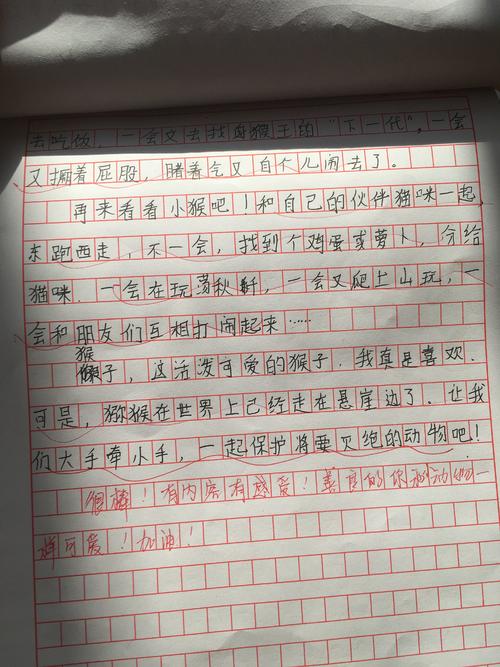 去吃饭，一会又去找母猴王的“下一代”，一会
又撅着屁股，赌着气又自个儿闹去了。
再来看看小猴吧！和自己的伙伴猫咪一起，
东跑西走，不一会，找到个鸡蛋或萝卜，分给
猫咪．一会在玩荡秋千，一会又爬上山玩，一
会和朋友们互相打闹起来……
猴
子，这活泼可爱的猴子．我真是喜欢．
可是，猕猴在世界上已经走在悬崖边了．让我
们大手牵小手，一起保护将要灭绝的动物吧！
很棒！有内容有感爱！善良的你和动物一
样可爱！加油！